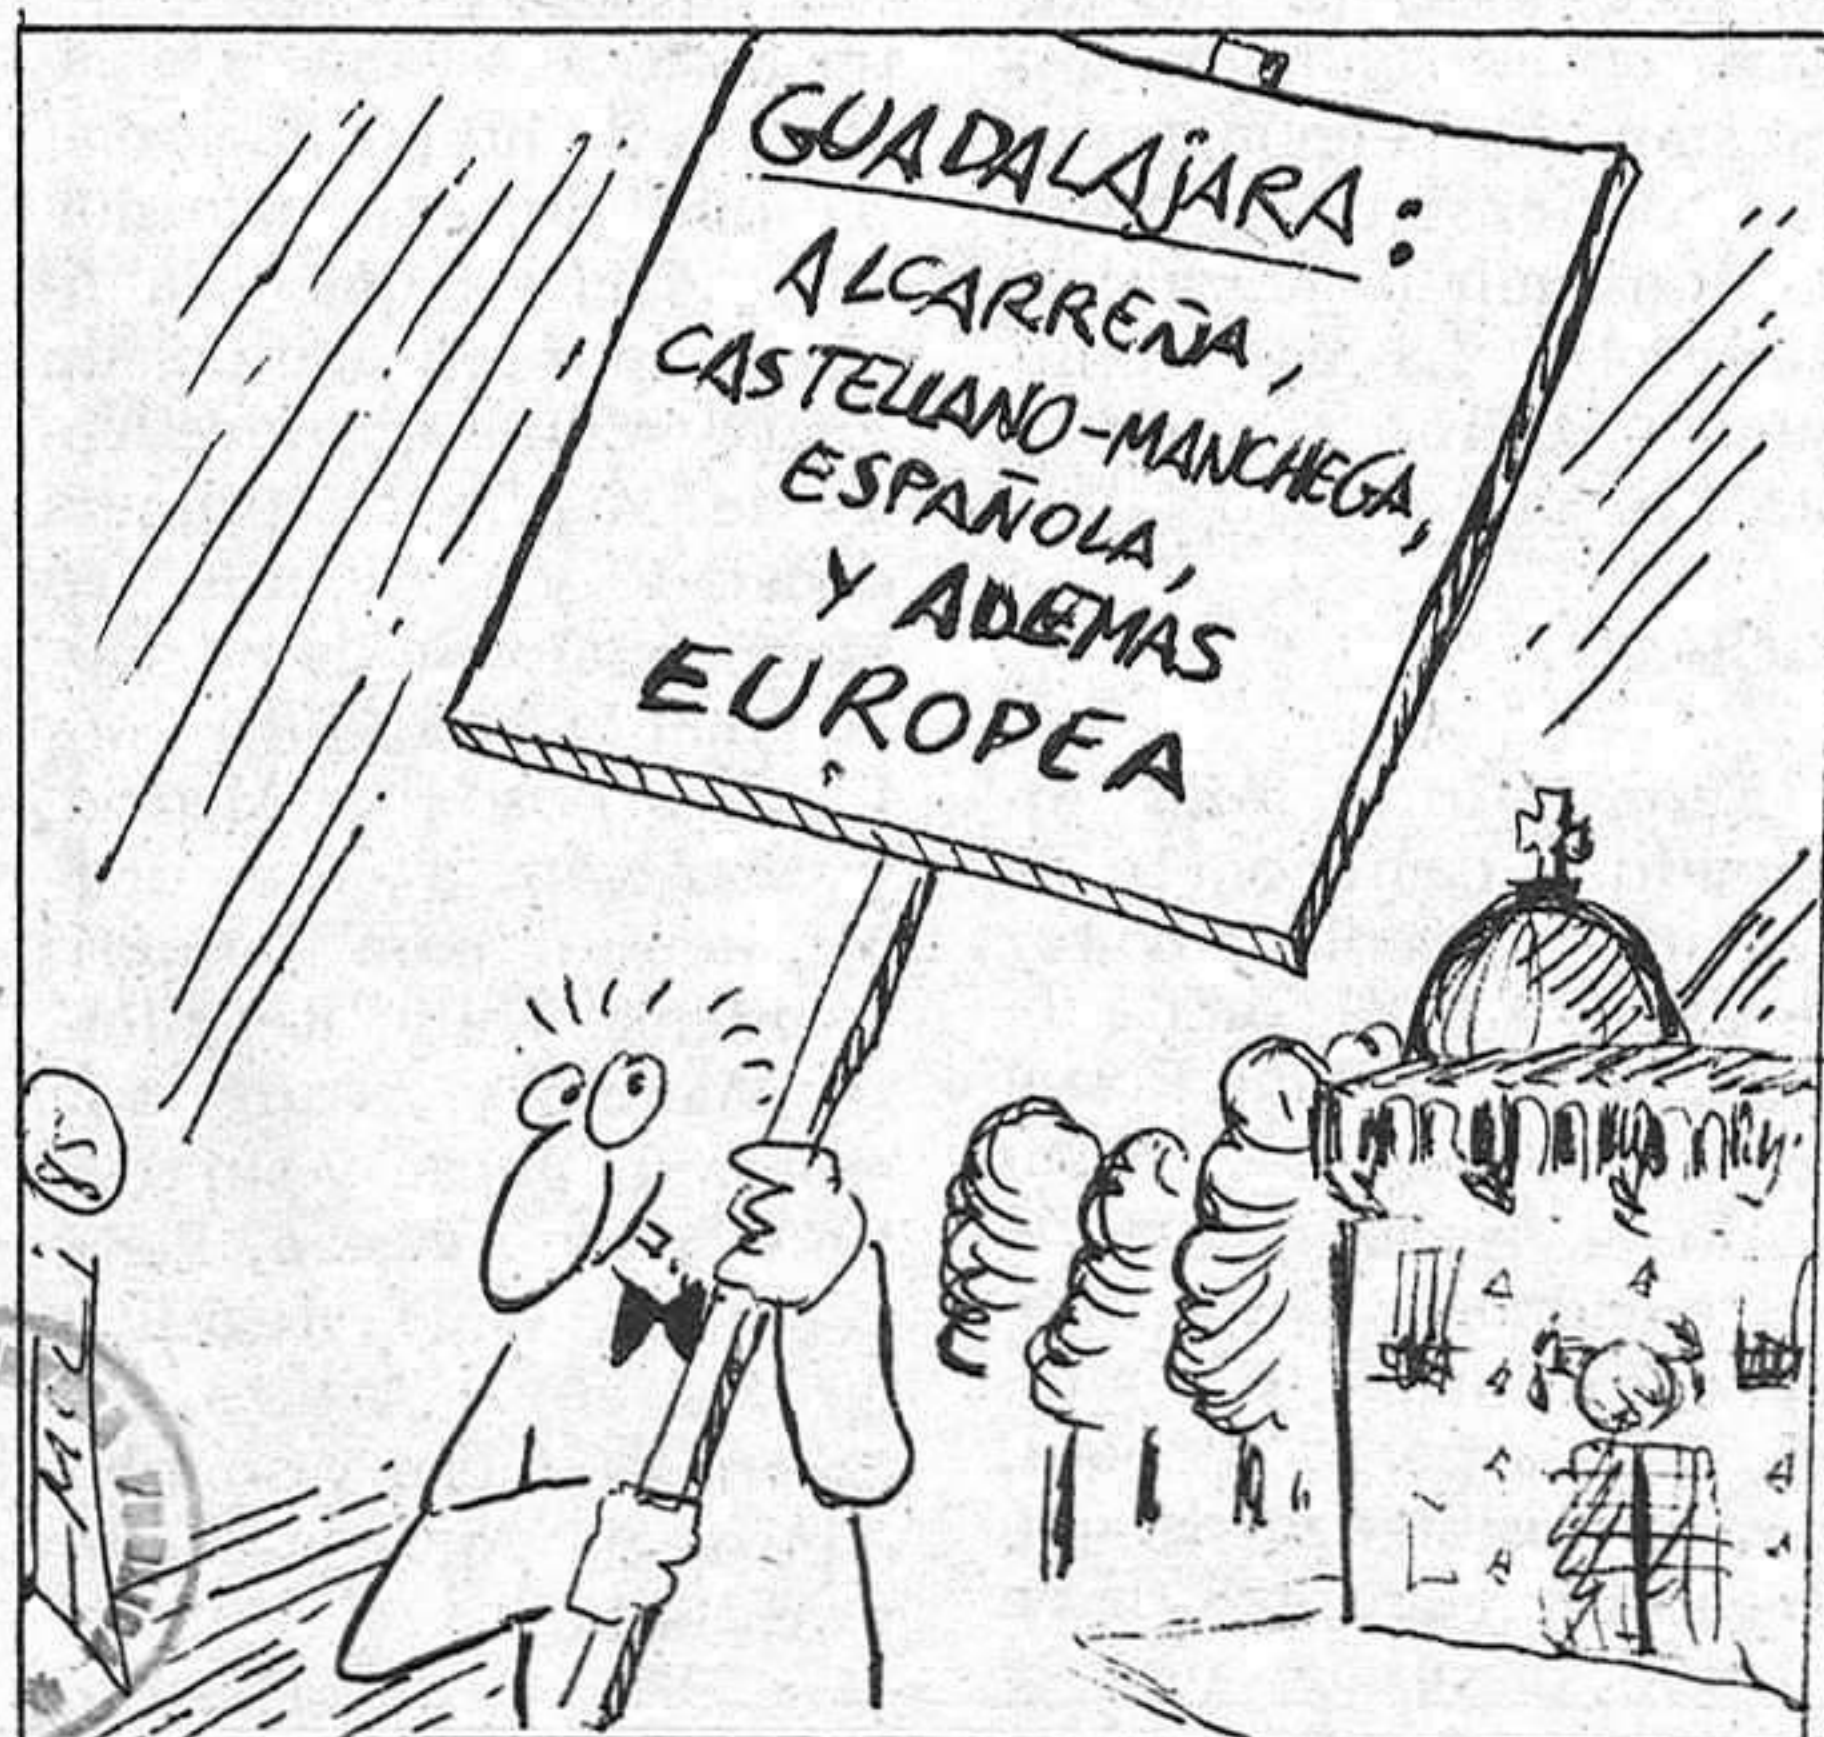 GUADALAJARA:
ALCARREÑA,
CASTELLANO-MANCHEGA,
ESPAÑOLA,
Y ADEMÁS
EUROPEA
85